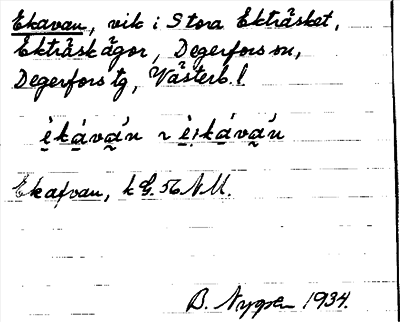 Ekavan, vik i Stora Ekträsket,
Ekträsk ägor, Degerfors sn,
Degerfors tg, Västerb. l
èkává́n ~ è:kává́n
Ekafvan, k G. 56 N.M.
B. 1934.